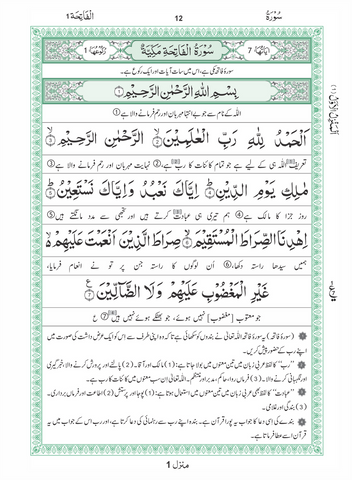 سُوْرَةُ 12 اَلْفَاتِحَة 1
اٰيَاتُهَا 7 سُوْرَةُ الْفَاتِحَةِ مَكِّيَّةٌ رُكُوْعُهَا 1
سورۂ فاتحہ مکی ہے، اس میں سات آیات اور ایک رکوع ہے۔
بِسْمِ اللّٰهِ الرَّحْمٰنِ الرَّحِيْمِ ①
اللہ کے نام سے جو بے انتہا مہربان اور رحم فرمانے والا ہے ①
اَلْحَمْدُ لِلّٰهِ رَبِّ الْعٰلَمِيْنَ ② الرَّحْمٰنِ الرَّحِيْمِ ③
تعریف اللہ ہی کے لیے ہے جو تمام کائنات کا رب ہے 2 نہایت مہربان اور رحم فرمانے والا ہے 3
مٰلِكِ يَوْمِ الدِّيْنِ ④ اِيَّاكَ نَعْبُدُ وَاِيَّاكَ نَسْتَعِيْنُ ⑤
روز جزا کا مالک ہے 4 ہم تیری ہی عبادت کرتے ہیں اور تجھی سے مدد مانگتے ہیں 5
اِهْدِنَا الصِّرَاطَ الْمُسْتَقِيْمَ ⑥ صِرَاطَ الَّذِيْنَ اَنْعَمْتَ عَلَيْهِمْ
ہمیں سیدھا راستہ دکھا، 6 اُن لوگوں کا راستہ جن پر تو نے انعام فرمایا،
غَيْرِ الْمَغْضُوْبِ عَلَيْهِمْ وَلَا الضَّآلِّيْنَ ⑦
جو معتوب [مغضوب] نہیں ہوئے، جو بھٹکے ہوئے نہیں ہیں 7
(سورۂ فاتحہ) یہ سورۂ فاتحہ اللہ تعالیٰ نے بندوں کو سکھائی ہے تاکہ وہ اپنی طرف سے اس کو ایک عرض داشت کی صورت میں
اپنے رب کے حضور پیش کریں۔
"رب" کا لفظ عربی زبان میں تین معنوں میں بولا جاتا ہے: (1) مالک اور آقا۔ (2) پالنے اور پرورش کرنے والا، خبر گیری
اور نگہبانی کرنے والا۔ (3) فرماں روا، حاکم، مدبر اور منتظم۔ اللہ تعالیٰ ان سب معنوں میں کائنات کا رب ہے۔
"عبادت" کا لفظ بھی عربی زبان میں تین معنوں میں استعمال ہوتا ہے: (1) پوجا اور پرستش (2) اطاعت اور فرماں برداری۔
(3) بندگی اور غلامی۔
بندے کی اسی دعا کا جواب یہ پورا قرآن ہے۔ بندہ اپنے رب سے رہنمائی کی دعا کرتا ہے، اور رب اس کے جواب میں یہ
قرآن اسے عطا فرماتا ہے۔
منزل 1